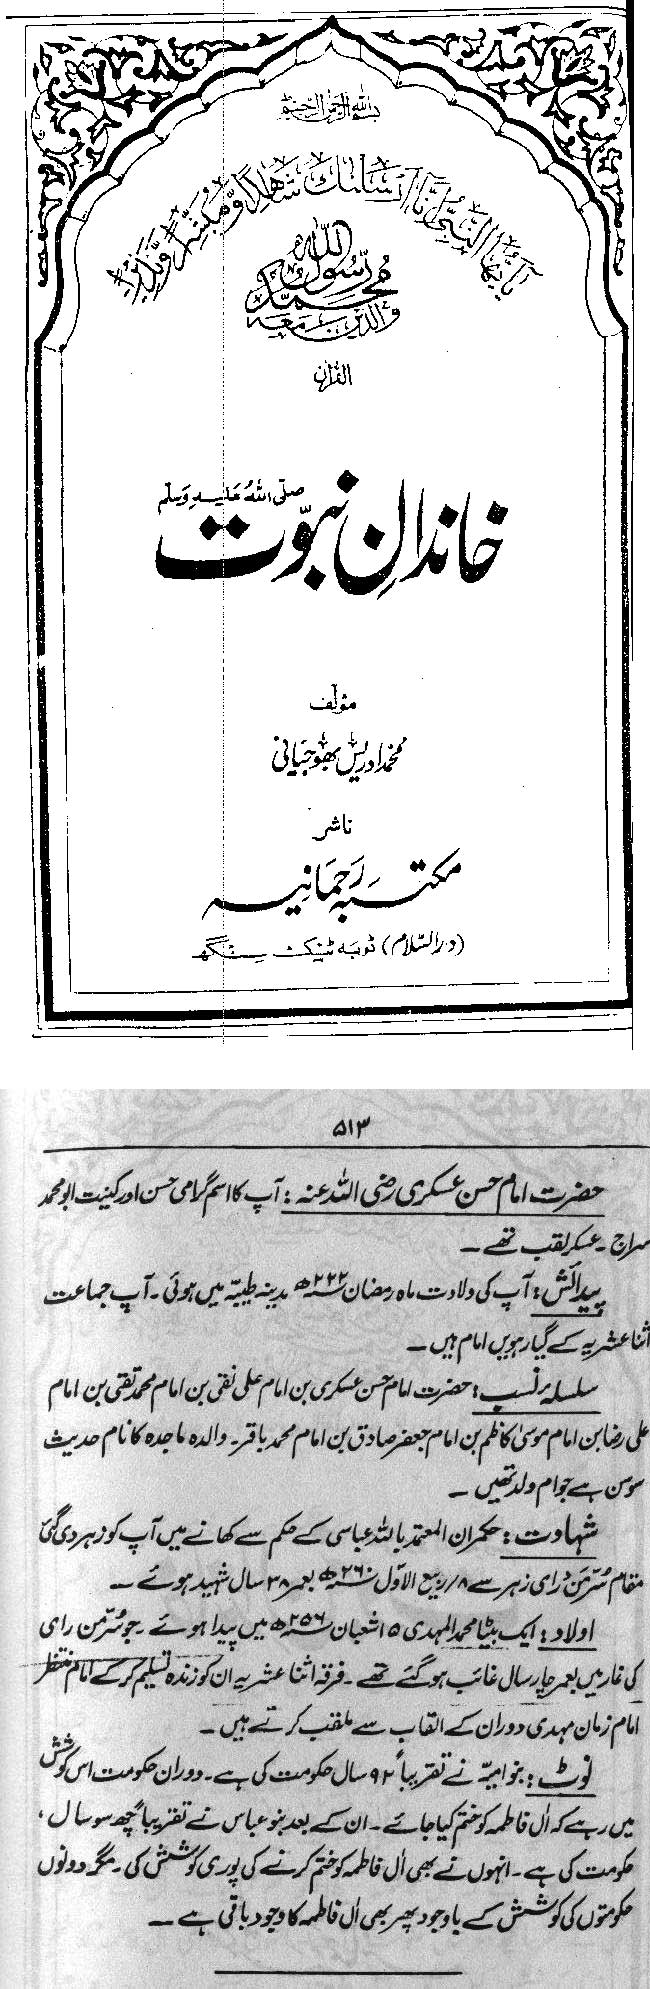 بسم اللہ الرحمن الرحیم
یٰۤاَیُّهَا النَّبِیُّ اِنَّاۤ اَرْسَلْنٰكَ شَاهِدًا وَّ مُبَشِّرًا وَّ نَذِیْرًا
محمد رسول اللہ
والذین معہ
القرآن
صلی اللہ علیہ وسلم
خاندانِ نبوّت
مؤلف
محمد ادریس بھوجیانی
ناشر
مکتبہ رحمانیہ
(درالسّلام) ٹوبہ ٹیک سنگھ
۵۱۳
حضرت امام حسن عسکری رضی اللہ عنہ : آپ کا اسم گرامی حسن اور کنیت ابو محمد
سراج ۔ عسکر لقب تھے ۔
پیدائش : آپ کی ولادت ماہ رمضان ۲۲۲ھ مدینہ طیبّہ میں ہوئی ۔ آپ جماعت
اثنا عشریہ کے گیارہویں امام ہیں ۔
سلسلہ نسب : حضرت امام حسن عسکری بن امام علی نقی بن امام محمد تقی بن امام
علی رضا بن امام موسیٰ کاظم بن امام جعفر صادق بن امام محمد باقر ۔ والدہ ماجدہ کا نام حدیث
سوسن ہے جو ام ولد تھیں ۔
شہادت : حکمران المعتمد باللہ عباسی کے حکم سے کھانے میں آپ کو زہر دی گئی
مقام سُرّمن رای زہر سے ۸/ ربیع الاوّل ۲۶۰ھ بعمر ۳۸ سال شہید ہوئے ۔
اولاد : ایک بیٹا محمد المہدی ۱۵ شعبان ۲۵۶ھ میں پیدا ہوئے ۔ جو سُرّمن رای
کی غار میں بعمر چار سال غائب ہو گئے تھے ۔ فرقہ اثنا عشریہ ان کو زندہ تسلیم کر کے امام منتظر
امام زمان مہدی دوران کے القاب سے ملقب کرتے ہیں ۔
نوٹ : بنو امیّہ نے تقریباً ۹۲ سال حکومت کی ہے ۔ دوران حکومت اس کوشش
میں رہے کہ اٰل فاطمہ کو ختم کیا جائے ۔ ان کے بعد بنو عباس نے تقریباً چھ سو سال ،
حکومت کی ہے ۔ انہوں نے بھی اٰل فاطمہ کو ختم کرنے کی پوری کوشش کی ۔ مگر دونوں
حکومتوں کی کوشش کے باوجود پھر بھی اٰل فاطمہ کا وجود باقی ہے ۔